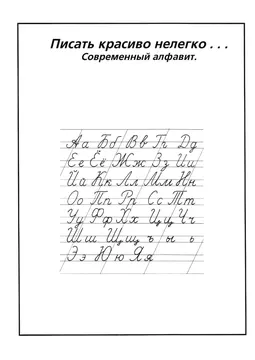 Писать красиво нелегко . . .
Современный алфавит.
Аа Бб Вв Гг Дд
Ее Ёё Жж Зз Ии
Йй Кк Лл Мм Нн
Оо Пп Рр Сс Тт
Уу Фф Хх Цц Чч
Шш Щщ ъ ы ь
Ээ Юю Яя